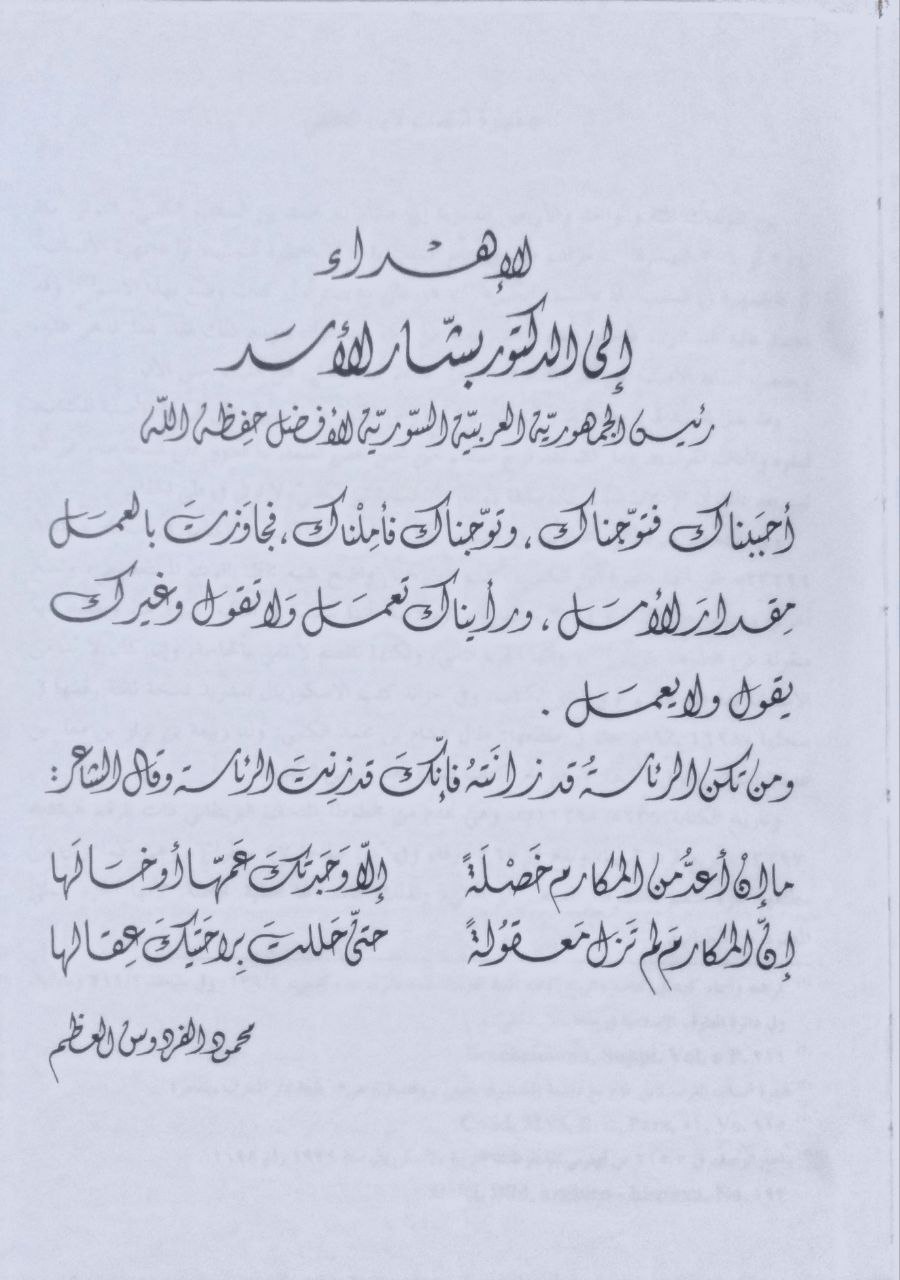 الإهداء
إلى الدكتور بشّار الأسد
رئيس الجمهوريّة العربيّة السّوريّة الأفضل حفِظه اللّه
أحبَبناك فتوّجناك ، وتوّجناك فأمِلْناك ، فجاوَزتَ بالعمَل
مِقدارَ الأمَل ، ورأيناك تَعمَل وَلا تَقول وغيرك
يقول ولا يعمَل .
ومن تكن الرئاسةُ قد زانَتهُ فإنّكَ قد زِنتَ الرئاسة وقال الشاعر :
ما إن أعدُّ من المكارم خَصْلَةً إلّا وَجَدتكَ عَمّها أو خالَها
إنّ المكارمَ لم تَزل مَعقولةً حتّى حَللتَ بِراحتَيكَ عِقالها
محمود الفردوس العظم